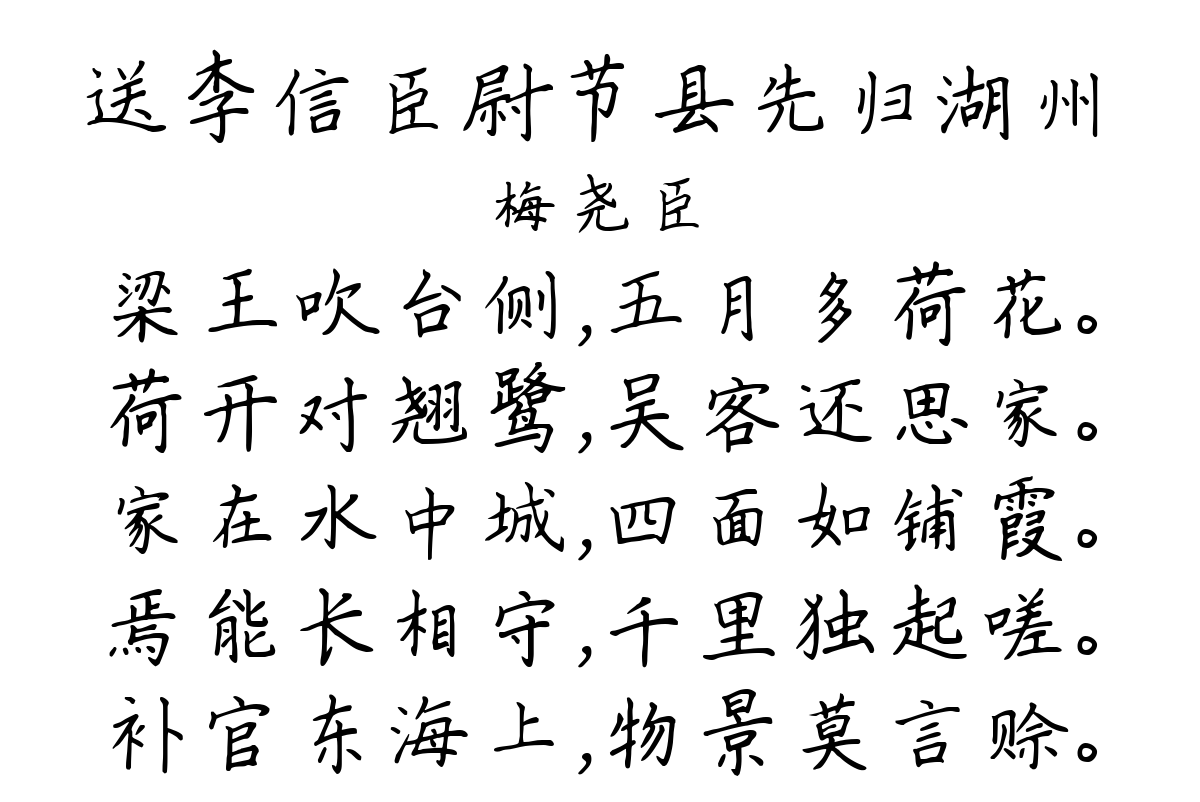 送李信臣尉节县先归湖州
梅尧臣
梁王吹台侧,五月多荷花。
荷开对翘鹭,吴客还思家。
家在水中城,四面如铺霞。
焉能长相守,千里独起嗟。
补官东海上,物景莫言赊。